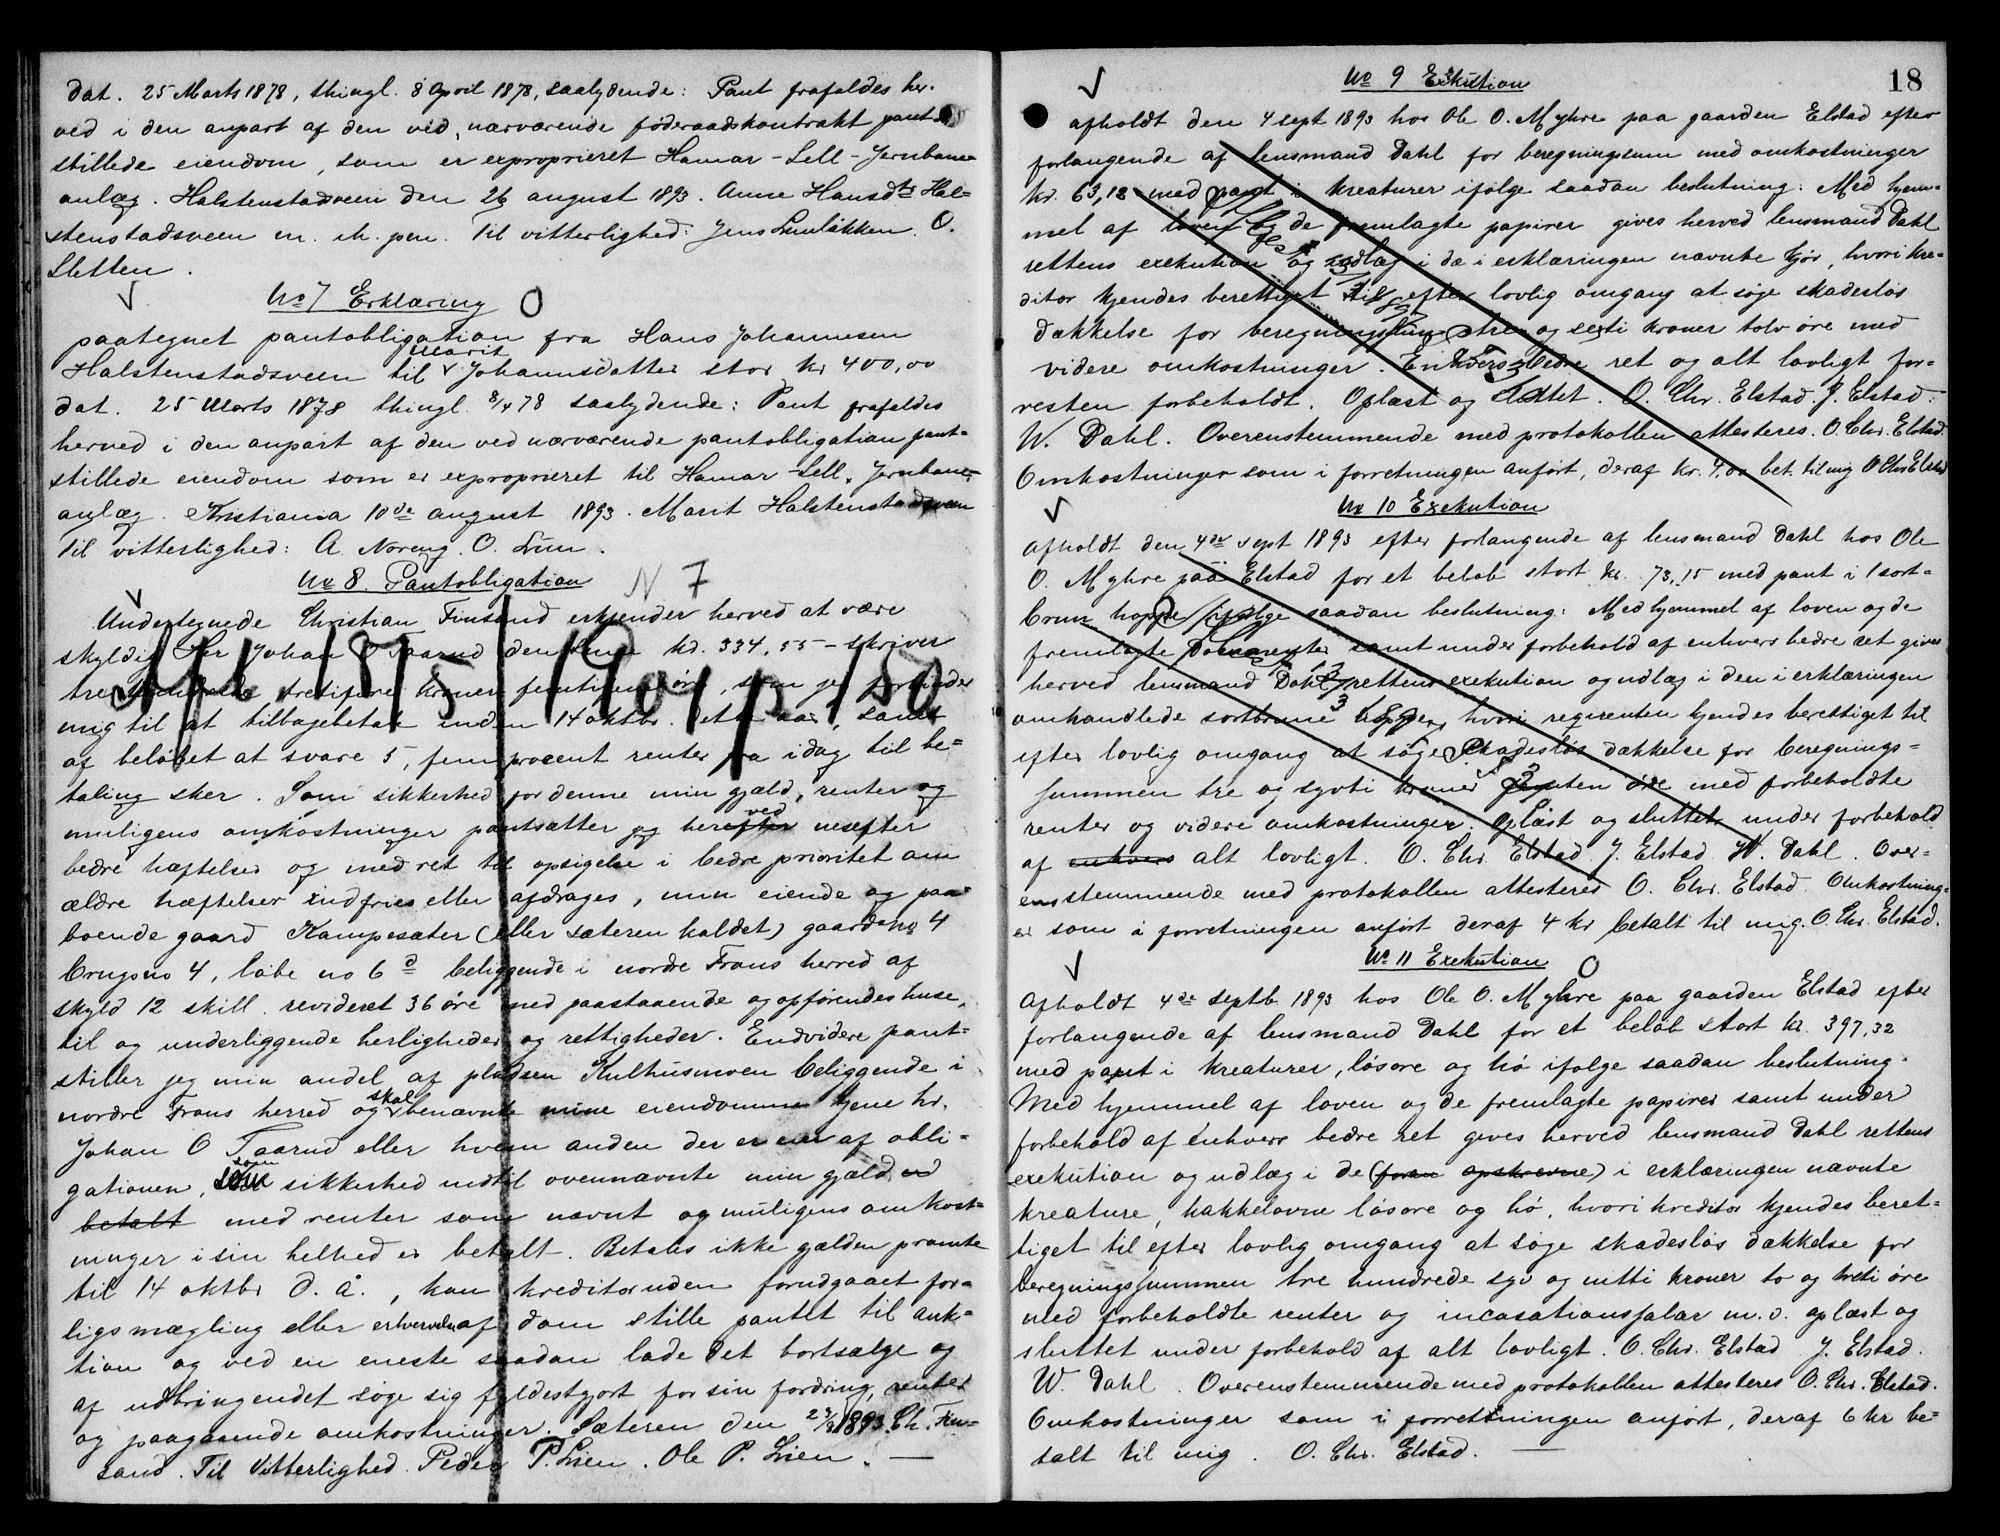 dat. 25 Marts 1878, thingl. 8 April 1878, saalydende: Pant frafaldes her-
ved i den anpart af den ved nærværende føderaadskontrakt pant-
stillede eiendom, som er exproprieret Hamar-Sell-Jernbane-
anlæg. Halstenstadsveen den 26 august 1893. Anne Hansdtr Hal-
stenstadsveen m. ih. pen. Til vitterlighed: Jens Lunløkken. O.
Sletten.
No 7 Erklæring
paategnet pantobligation fra Hans Johannesen
Halstenstadsveen til Marit Johannsdatter stor kr 400,00
dat. 25 Marts 1878 thingl. 8/4 78 saalydende: Pant frafaldes
herved i den anpart af den ved nærværende pantobligation pant-
stillede eiendom som er exproprieret til Hamar-Sell. Jernbane-
anlæg. Kristiania 10de august 1893. Marit Halstenstadsveen
Til vitterlighed: A. Noreng. O. Lien.
No 8. Pantobligation N 7
Undertegnede Christian Finsand erkjender herved at være
skyldig Hr Johan O Taarud den sum kr. 334,55 - skriver
tre hundrede tretifire kroner femtifem øre, som jeg forbinder
mig til at tilbagebetale inden 14 oktbr. dette aar, samt
af beløbet at svare 5, fem procent renter fra idag til be-
taling sker. Som sikkerhed for denne min gjæld, renter og
muligens omkostninger pantsætter jeg herefter ved næsefter
bedre hæftelser og med ret til opsigelse i bedre prioritet om
ældre hæftelser indfries eller afdrages, min eiende og paa-
boende gaard Kampesæter (eller sæteren kaldet) gaards no 4
brugsno 4, løbe no 6 d beliggende i nordre Frons herred af
skyld 12 skill. revideret 36 øre med paastaaende og opførendes huse,
til og underliggende herligheder og rettigheder. Endvidere pant-
stiller jeg min andel af pladsen Kulhusmoen beliggende i
nordre Frons herred og skal benævnte mine eiendomme tjene hr.
Johan O Taarud eller hvem anden der er eier af obli-
gationen, som sikkerhed indtil ovennævnte min gjæld er
betalt med renter som nævnt og muligens omkost-
ninger i sin helhed er betalt. Betales ikke gjælden promte
til 14 oktbr d. å., kan kreditor uden forudgaaet for-
ligsmægling eller erhvervelse af dom stille pantet til auk-
tion og ved en eneste saadan lade det bortsælge og
af udbringendet søge sig fyldestgjort for sin fordring, renter
og paagaaende omkostninger. Sæteren den 1893. Ch. Fin-
sand. Til Vitterlighed. Peder P. Lien. Ole P. Lien. —
18
No 9 Exekution
afholdt den 4 sept 1893 hos Ole O. Myhre paa gaarden Elstad efter
forlangende af lensmand Dahl for beregningsum med omkostninger
kr. 63,12 med pant i kreaturer ifølge saadan beslutning: Med hjem-
mel af loven og de fremlagte papirer gives herved lensmand Dahl
rettens exekution og udlæg i de i erklæringen nævnte kjør, hvori kre-
ditor kjendes berettiget til efter lovlig omgang at søge skadesløs
dækkelse for beregningssum tre og sexti kroner tolv øre med
videre omkostninger. Enhvers bedre ret og alt lovligt for-
resten forbeholdt. Oplæst og sluttet. O. Chr. Elstad. J. Elstad.
W. Dahl. Overenstemmende med protokollen attesteres. O. Chr. Elstad.
Omkostninger som i forretningen anført, deraf kr. bet. til mig O Chr Elstad
No 10 Exekution
afholdt den 4de sept 1893 efter forlangende af lensmand Dahl hos Ole
O. Myhre paa Elstad for et beløb stort kr. 73,15 med pant i 1 sort-
brun hoppe ifølge saadan beslutning: Med hjemmel af loven og de
fremlagte Dokumenter samt under forbehold af enhvers bedre ret gives
herved lensmand Dahl rettens exekution og udlæg i den i erklæringen
omhandlede sortbrune hoppe, hvori reqirenten kjendes berettiget til
efter lovlig omgang at søge skadesløs dækkelse for beregnings-
summen tre og sytti kroner femten øre med forbeholdte
renter og videre omkostninger. Oplæst og sluttet under forbehold
af enhvers alt lovligt. O. Chr Elstad J. Elstad W. Dahl. Over-
ensstemmende med protokollen attesteres O. Chr. Elstad. Omkostning-
er som i forretningen anført deraf 4 kr betalt til mig. O. Chr. Elstad.
No 11 Exekution
afholdt 4de septb. 1893 hos Ole O. Myhre paa gaarden Elstad efter
forlangende af lensmand Dahl for et beløb stort kr. 397,32
med pant i kreaturer, løsøre og hø ifølge saadan beslutning.
Med hjemmel af loven og de fremlagte papirer samt under
forbehold af enhvers bedre ret gives herved lensmand Dahl rettens
exekution og udlæg i de (foran opskrevne) i erklæringen nævnte
kreature, kakkelovne løsøre og hø, hvori kreditor kjendes beret-
tiget til efter lovlig omgang at søge skadesløs dækkelse for
beregningssummen tre hundrede syv og nitti kroner to og treti øre
med forbeholdte renter og incasationssalær m. v. oplæst og
sluttet under forbehold af alt lovligt. O. Chr. Elstad J. Elstad.
W. Dahl. Overenstemmende med protokollen attesteres O. Chr. Elstad.
Omkostninger som i forretningen anført, deraf 6 kr be-
talt til mig. O. Chr. Elstad. —